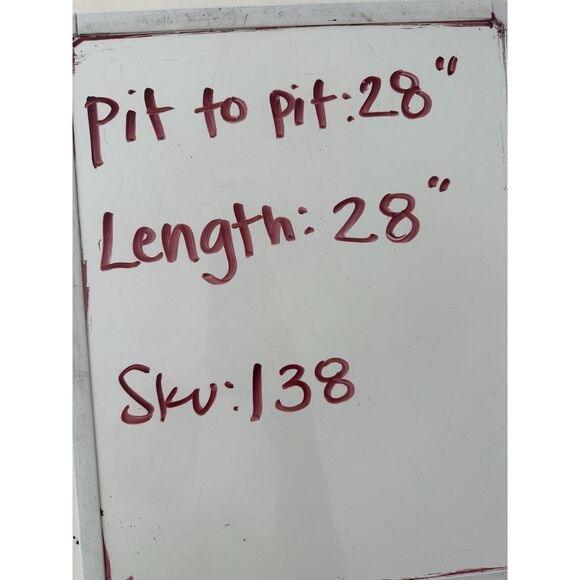 Pit to pit: 28"
Length: 28"
Sku: 138